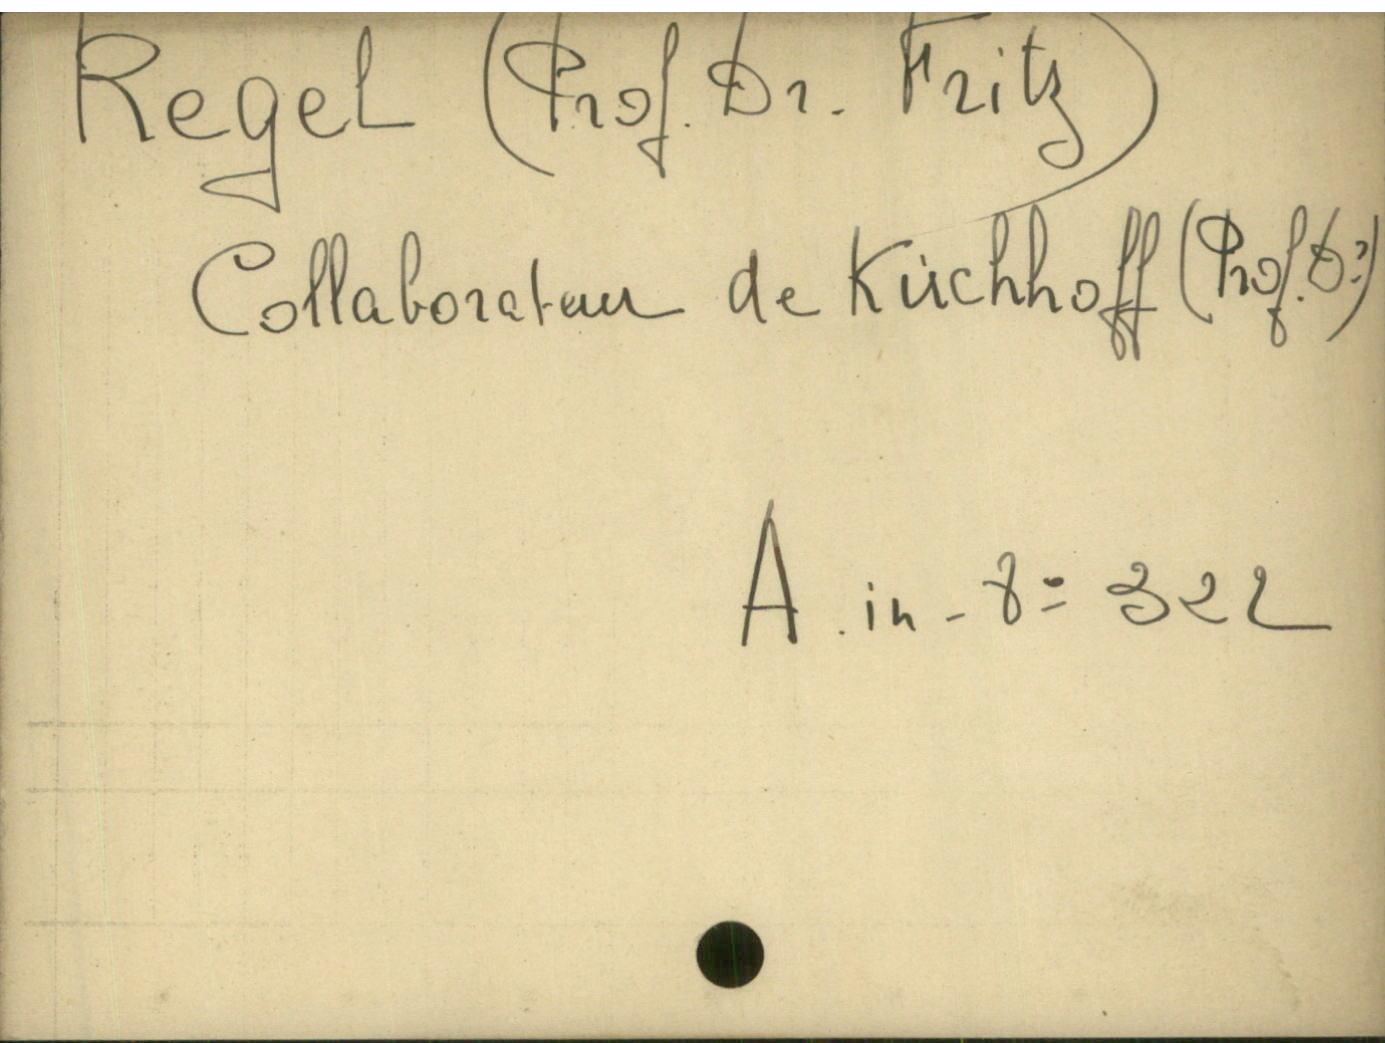 Regel (Prof. Dr. Fritz)
Collaborateur de Kirchhoff (Prof. Dr)
A. in-8º 322